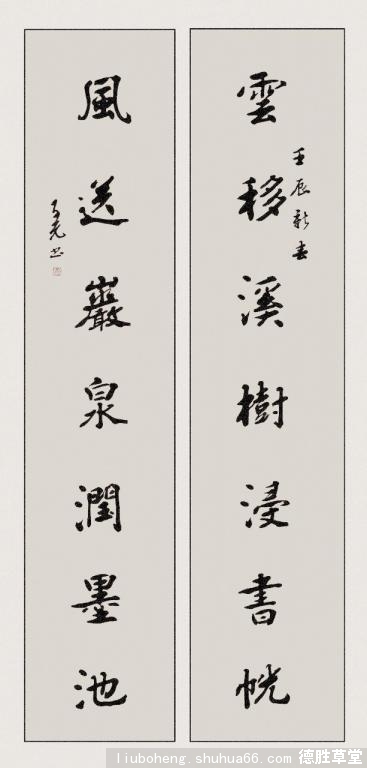 雲移溪樹浸書幌
壬辰新春
風送巖泉潤墨池
liuboheng.shuhua66.com 德胜草堂